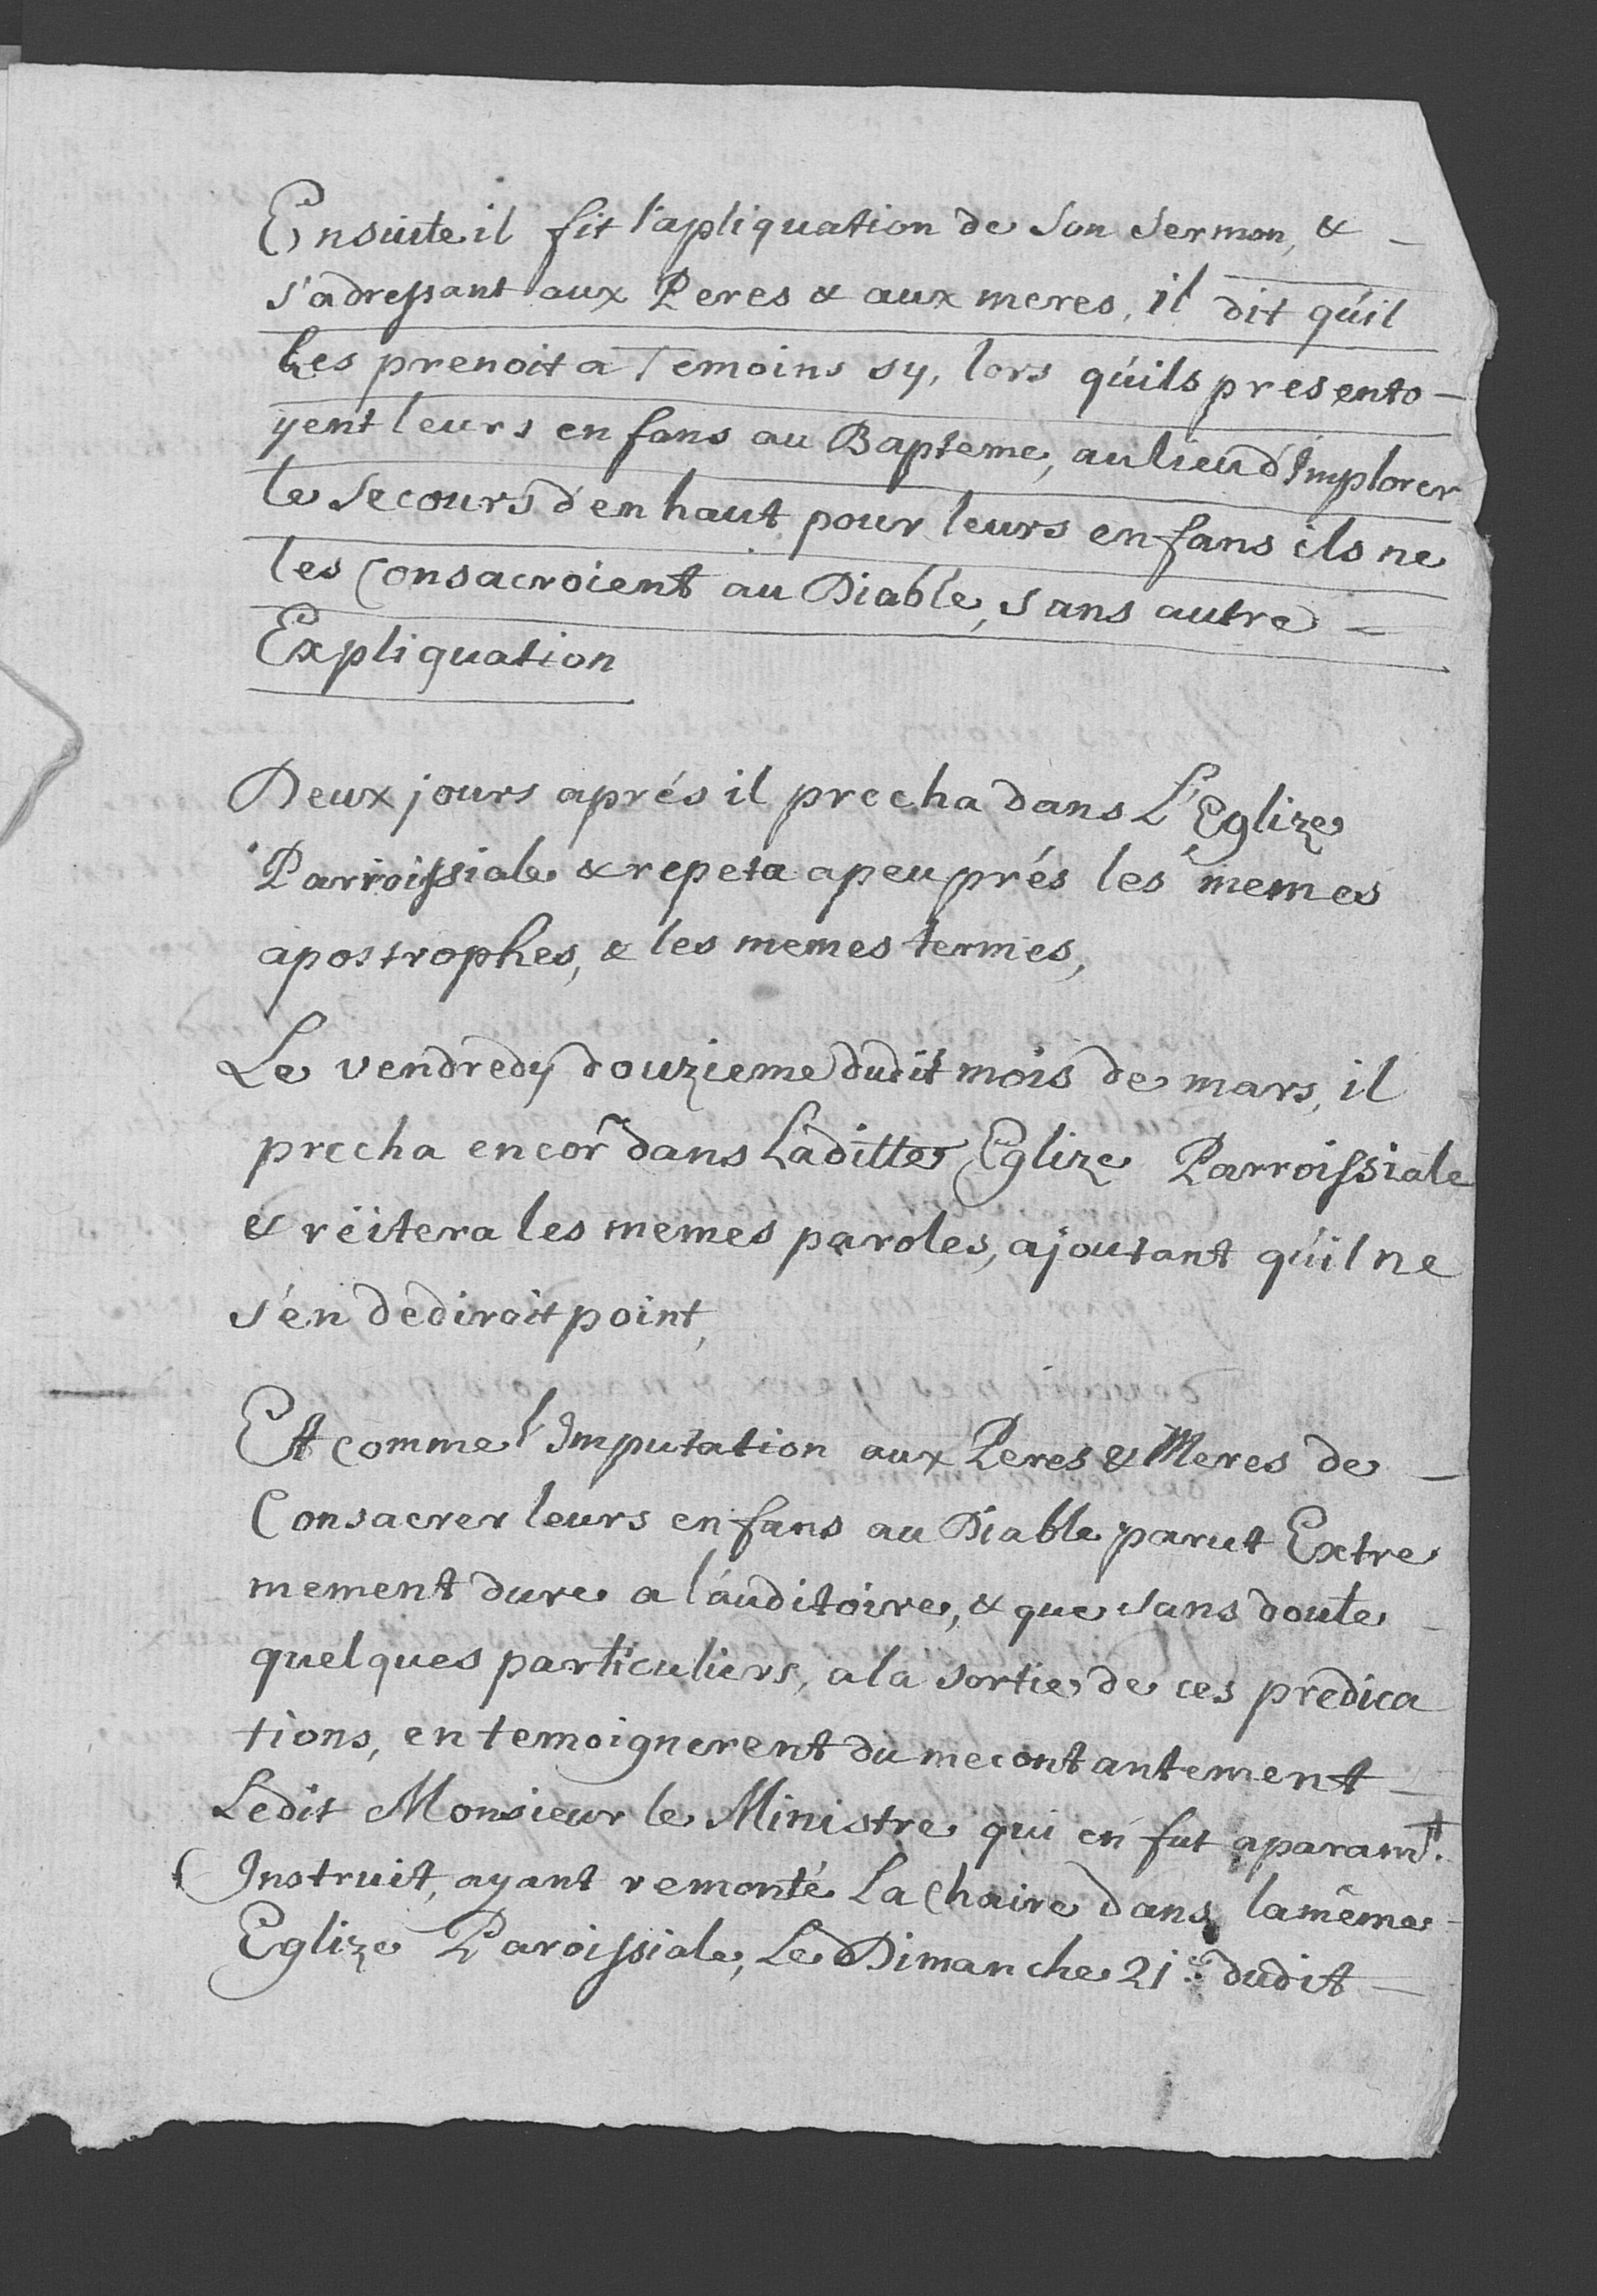 Ensuite il fit l'apliquation de son sermon, & –
s'adressant aux Peres & aux meres, il dit qu'il
les prenoit a Temoins sy, lors qu'ils presento –
yent leurs enfans au Bapteme, au lieu d'Implorer
le secours d'en haut pour leurs enfans ils ne
les Consacroient au Diable, sans autre –
Expliquation
Deux jours aprés il precha dans L'Eglize
Parroissiale & repeta a peu prés les memes
apostrophes, & les memes termes,
Le vendredy douzieme dudit mois de mars, il
precha encor dans Laditte Eglize Parroissiale
& réitera les memes paroles, ajoutant qu'il ne
s'en dediroit point,
Et comme l'Imputation aux Peres & Meres de –
Consacrer leurs enfans au Diable parut Extre
mement dure a l'auditoire, & que sans doute
quelques particuliers, a la sortie de ces predica
tions, en temoignerent du mecontantement –
Ledit Monsieur le Ministre qui en fut aparamt.
Instruit, ayant remonté La Chaire dans la même –
Eglize Paroissiale, Le Dimanche 21e. dudit –